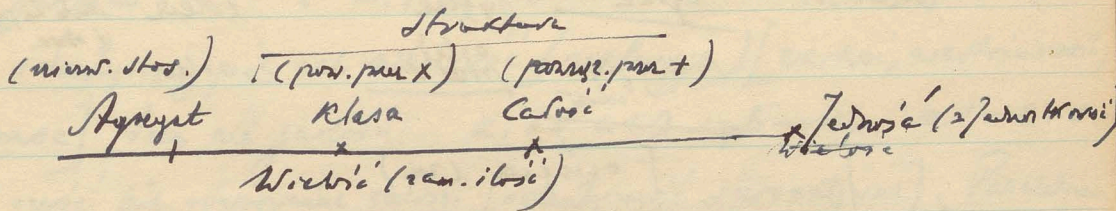 struktura
(nierw. stos.) (pow. przez X) (powiąz. przez +)
Agregat Klasa Całość Jedność (z Jednostkowość)
Wielość
Wielość (zam. ilość)